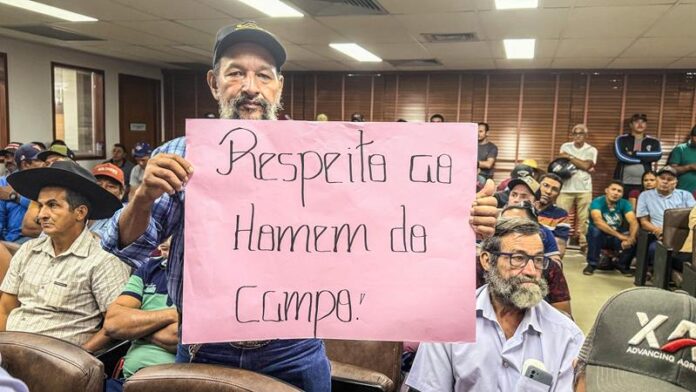 Respeito ao
Homem do
Campo!
XA
ADVANCING AG